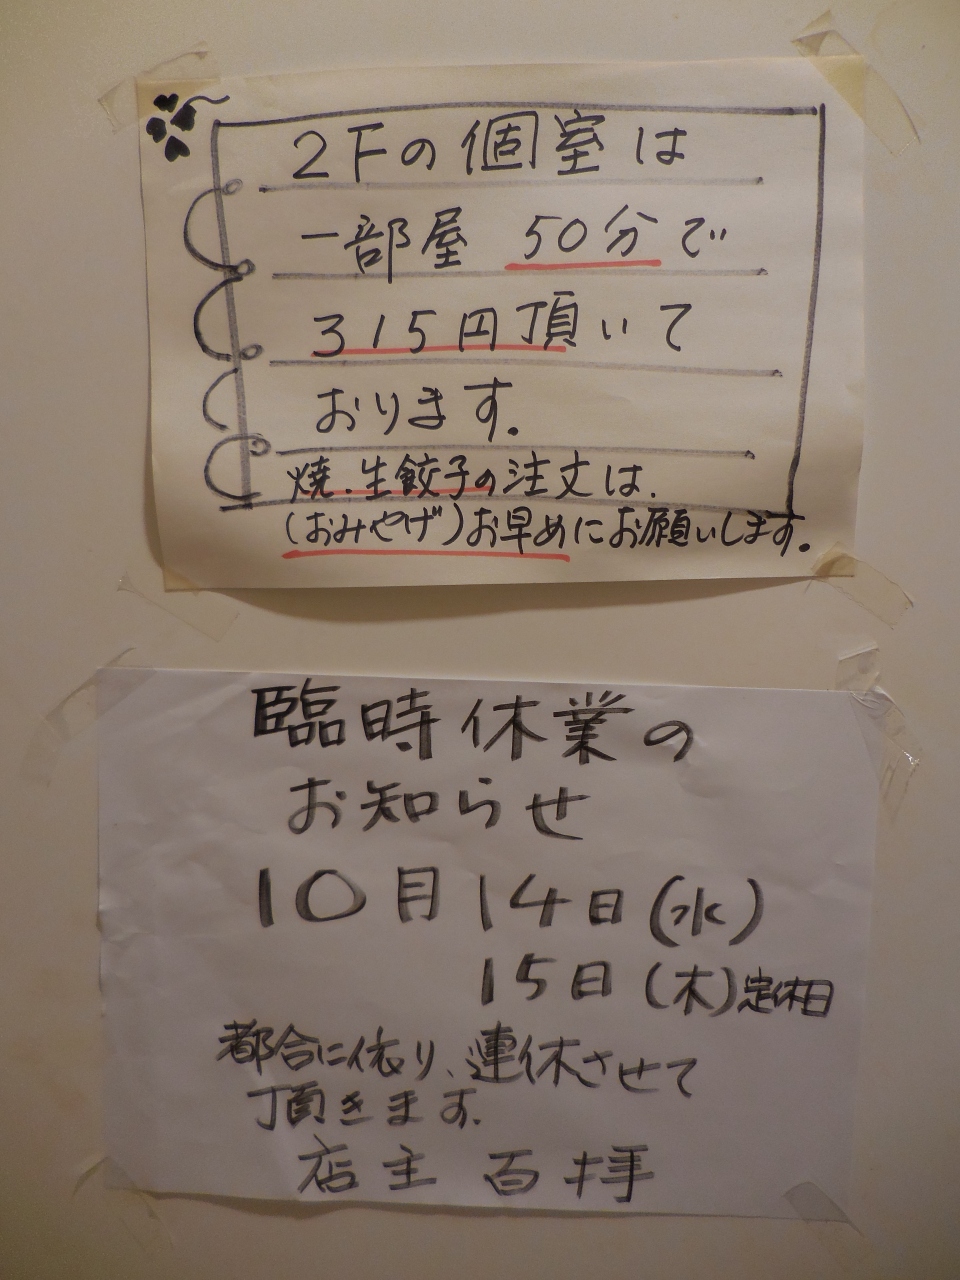 2Fの個室は
一部屋 50分で
315円頂いて
おります。
焼.生餃子の注文は.
(おみやげ)お早めにお願いします。
臨時休業の
お知らせ
10月14日(水)
15日(木)定休日
都合に依り、連休させて
頂きます.
店主 百拝